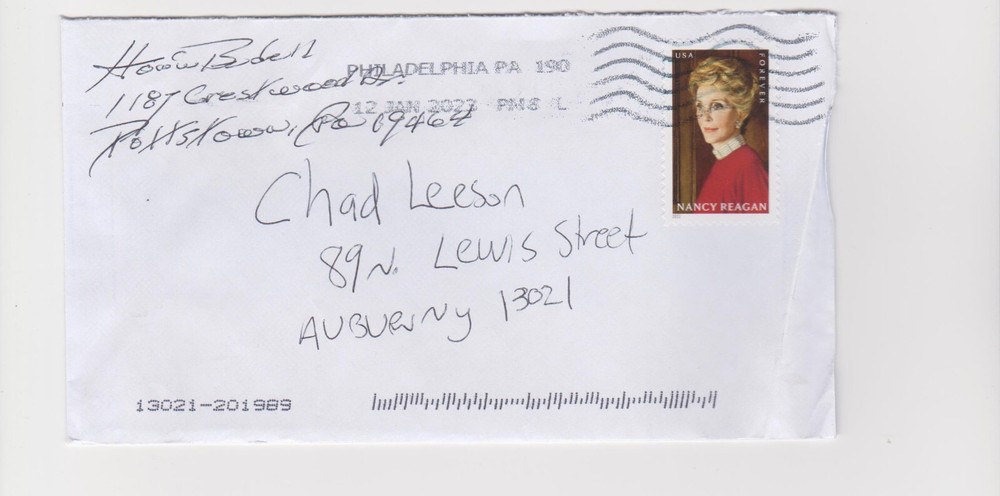 Howie Bedell
1187 Crestwood Dr.
Pottstown, Pa 19464
PHILADELPHIA PA 190
12 JAN 2023 PM 8 L
USA
FOREVER
NANCY REAGAN
Chad Leeson
89 N. Lewis Street
AUBURN NY 13021
13021-201989